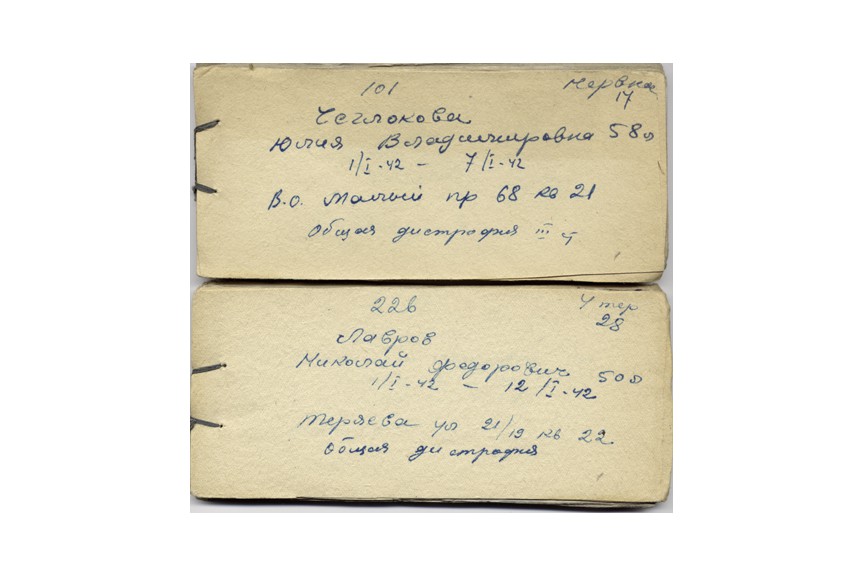 101
Нервна
17
Чеглокова
Юлия Владимировна 58л
1/I-42 - 7/I-42
В.О. Малый пр 68 кв 21
Общая дистрофия III
226
4 тер
28
Лавров
Николай Федорович 50л
1/I-42 - 12/I-42
Теряева ул 21/19 кв 22
Общая дистрофия